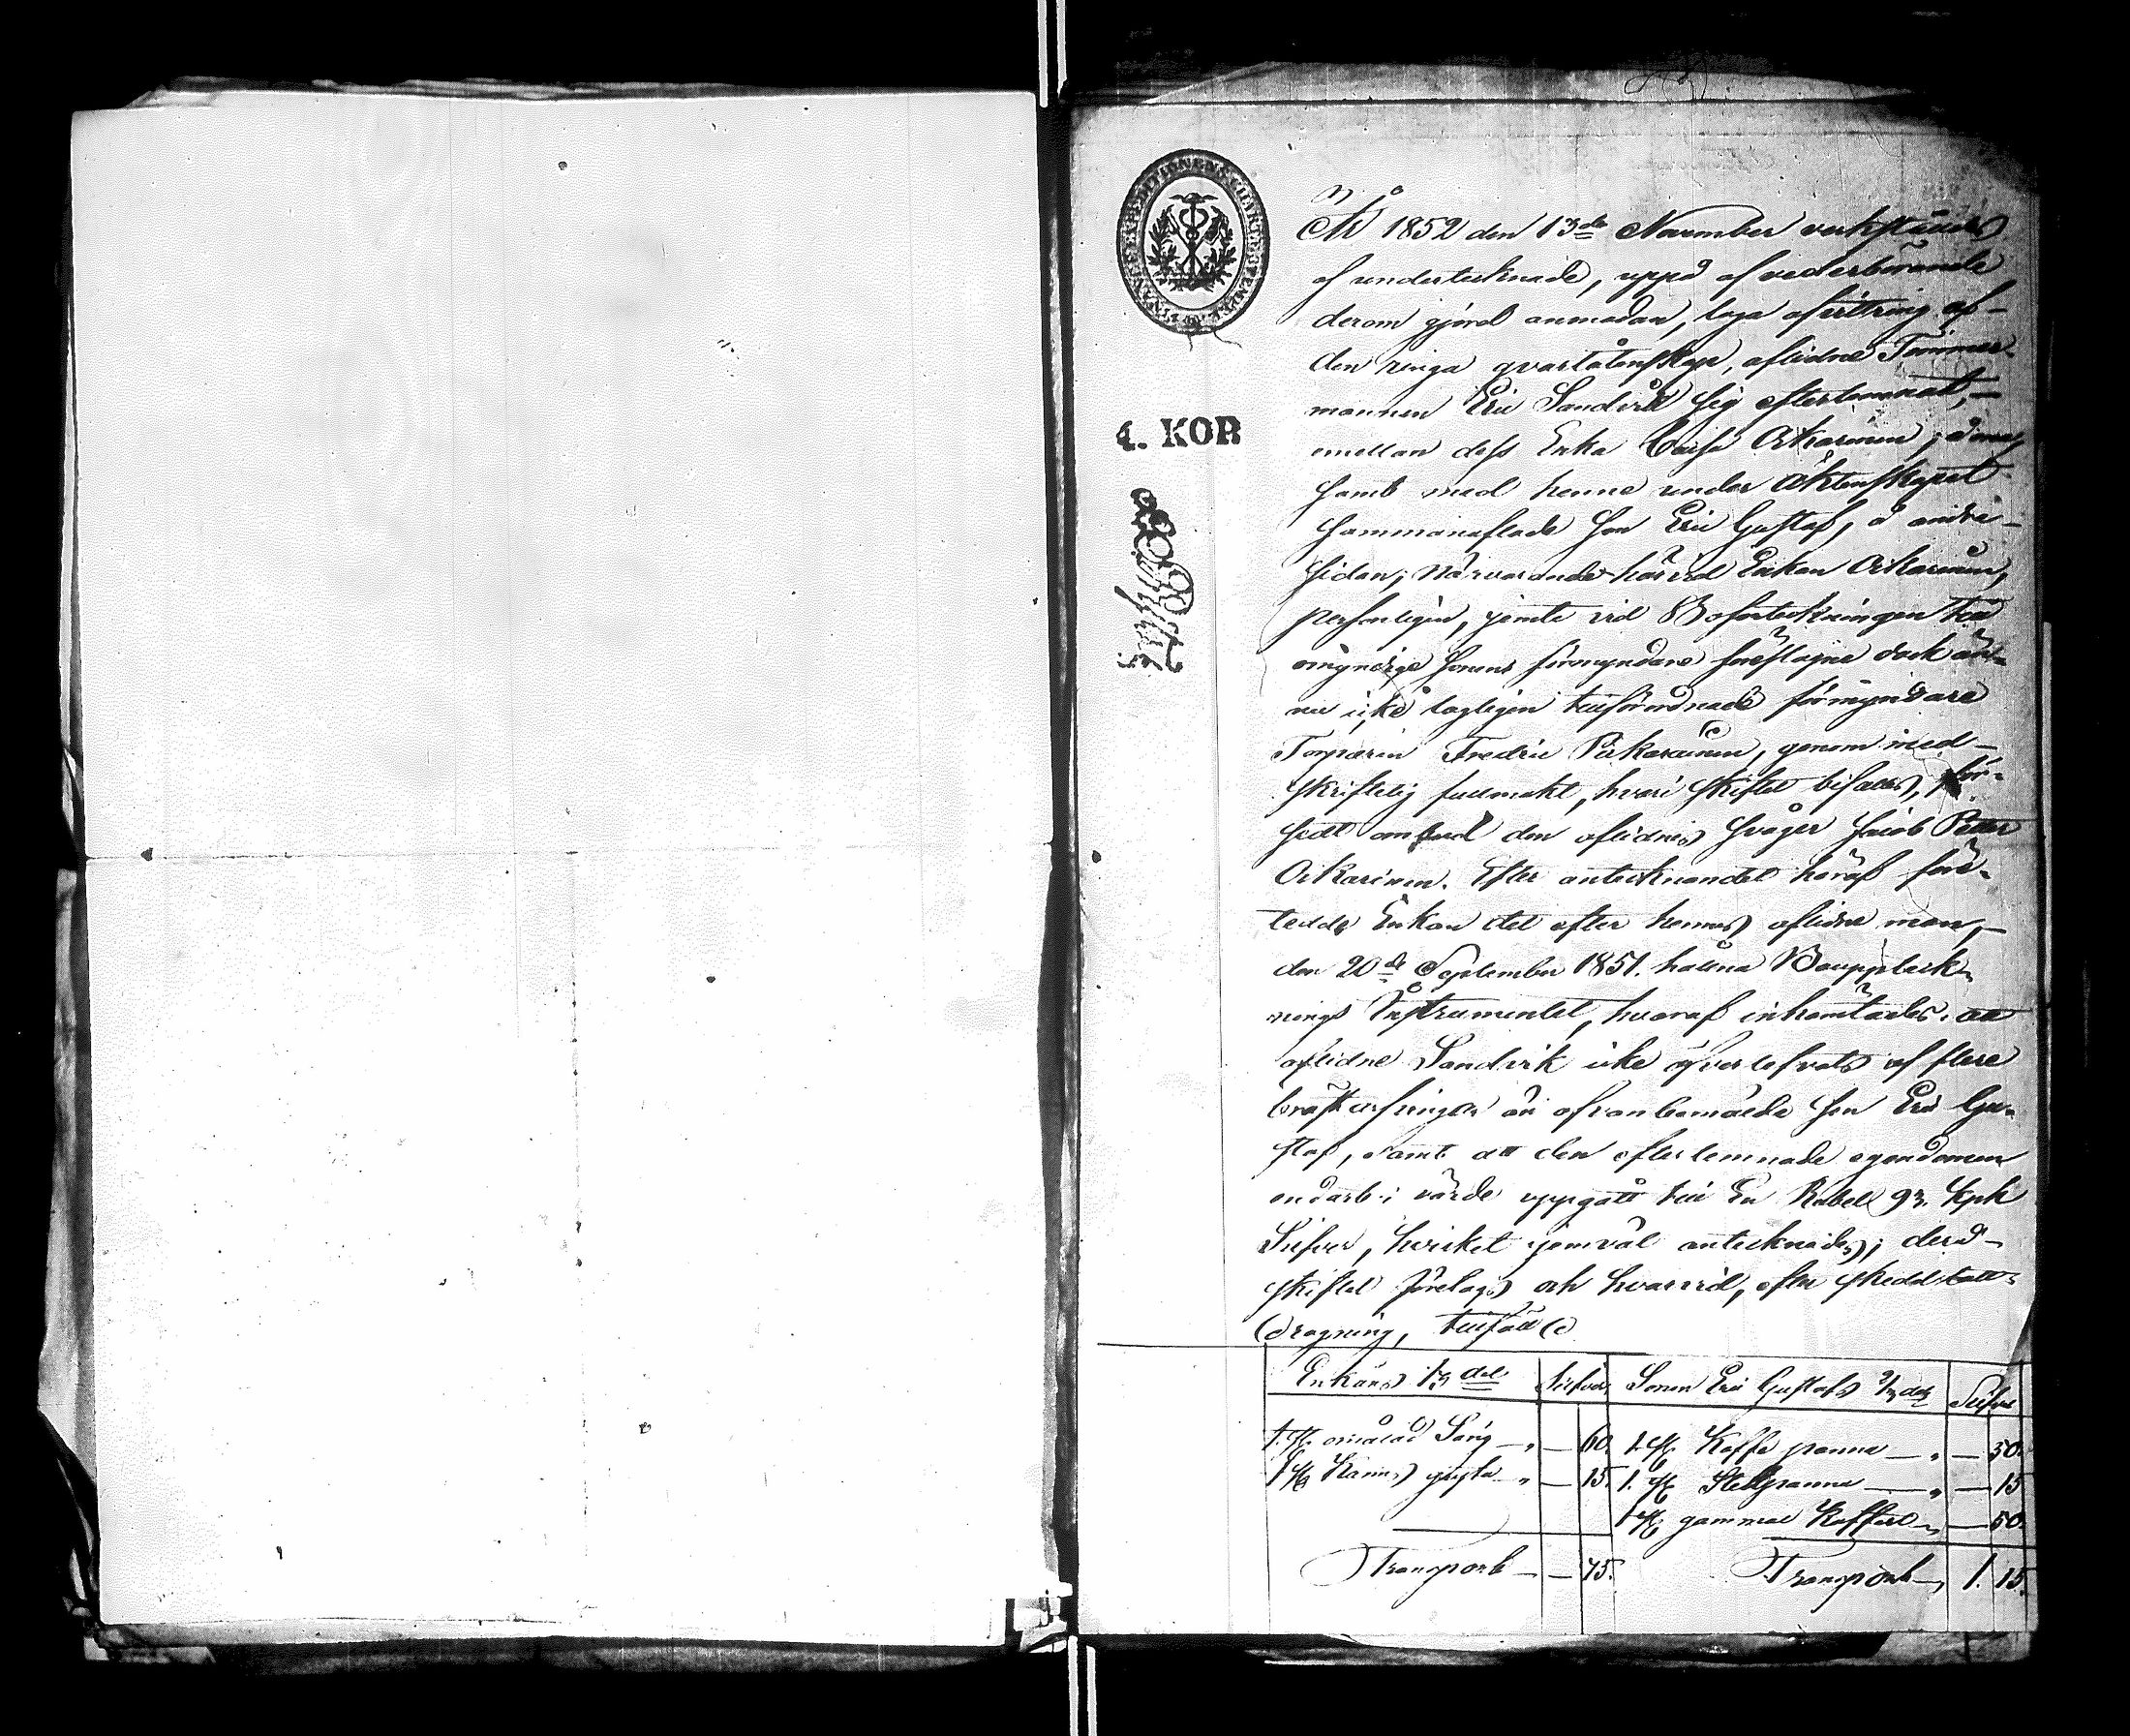 4. KOP
År 1852 den 13de November verkstäldes
af undertecknade, uppå af vederbörande
derom gjord anmodan, laga afvittring af
den ringa qvarlåtenskap, aflidne Timmer-
mannen Eric Sandvik sig efterlemnat,
emellan dess Enka Caisa Oikarinen, å ena
samt med henne under äktenskapet
sammanaflade Son Eric Gustaf, å andra
sidan; Närvarande härvid Enkan Oikarinen,
personligen, jemte vid Boförteckningen till
omyndige sonens förmyndare föreslagne dock än-
nu icke lagligen tillförordnade förmyndare
Torparen Fredric, genom med-
skriftelig fullmakt, hvari skiftet bifalles, för-
sedt ombud den aflidnes Svåger Jacob Petter
Oikarinen. Efter antecknandet häraf före-
tedde Enkan det efter hennes aflidne man,
den 20de September 1851. hållna Bouppteck-
nings Instrumentet, hvaraf inhämtades, att
aflidne Sandvik icke öfverlefvats af flere
bröstarfvingar än ofvanbemälde Son Eric Gu-
staf, samt att den efterlemnade egendomen
endast i värde uppgått till En Rubel 93. Kpk
Silfver, hvilket jemväl antecknades; derå
skiftet företogs och hvarvid, efter skedd lott-
dragning, tillföll
Enkans 1/3 del Silfver Sonen Eric Gustafs 2/3 del Silfver
1. st. omålad Säng — " — 60. 1. st. Kaffe panna — " — 50.
1 st. " — 15. 1. st. Stekpanna — " — 15
1 st. gammal Koffert " — 50.
Transport — — 75. Transport — 1. 15.